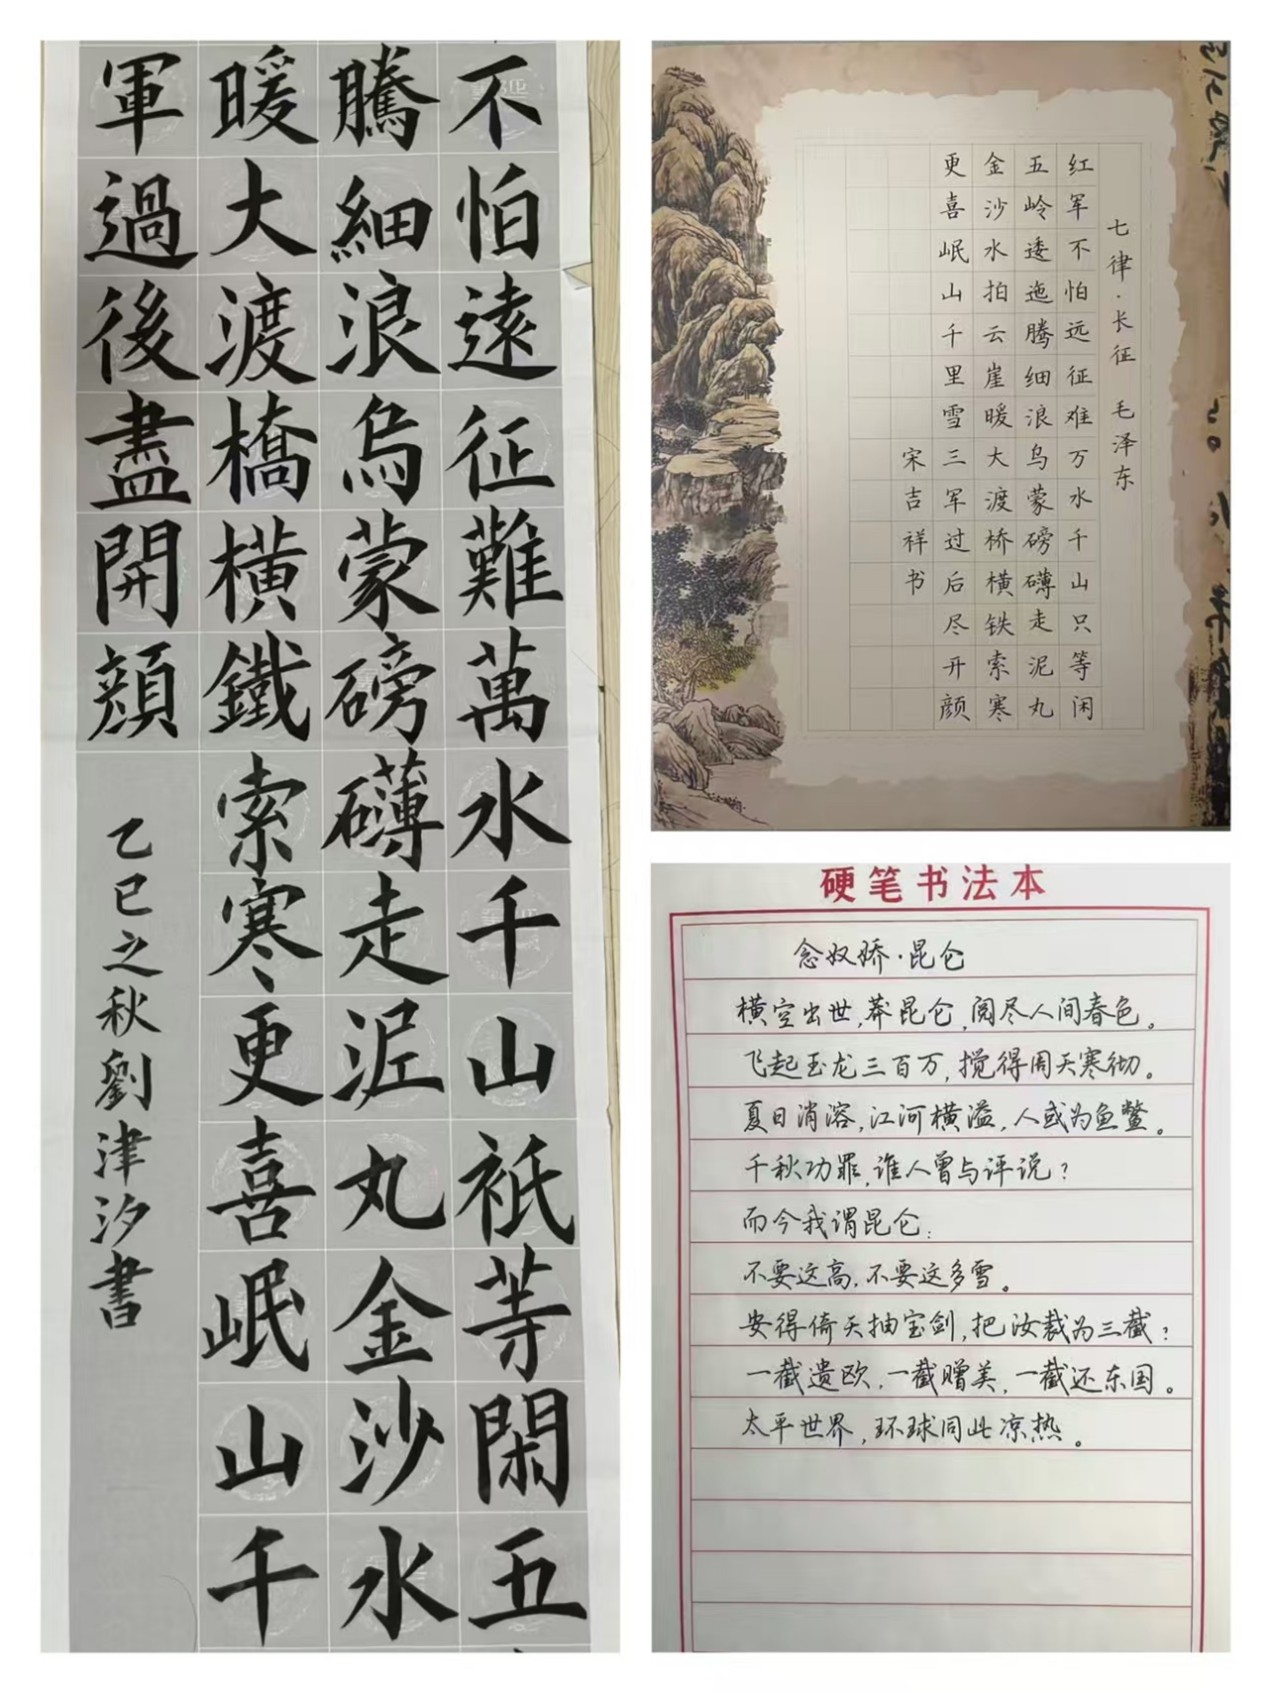 不怕遠征難萬水千山祇等閑五
騰細浪烏蒙磅礴走泥丸金沙水
暖大渡橋橫鐵索寒更喜岷山千
軍過後盡開顔
乙巳之秋劉津汐書
七律·长征 毛泽东
红军不怕远征难万水千山只等闲
五岭逶迤腾细浪乌蒙磅礴走泥丸
金沙水拍云崖暖大渡桥横铁索寒
更喜岷山千里雪三军过后尽开颜
宋吉祥书
硬笔书法本
念奴娇·昆仑
横空出世,莽昆仑,阅尽人间春色。
飞起玉龙三百万,搅得周天寒彻。
夏日消溶,江河横溢,人或为鱼鳖。
千秋功罪,谁人曾与评说?
而今我谓昆仑:
不要这高,不要这多雪。
安得倚天抽宝剑,把汝裁为三截?
一截遗欧,一截赠美,一截还东国。
太平世界,环球同此凉热。